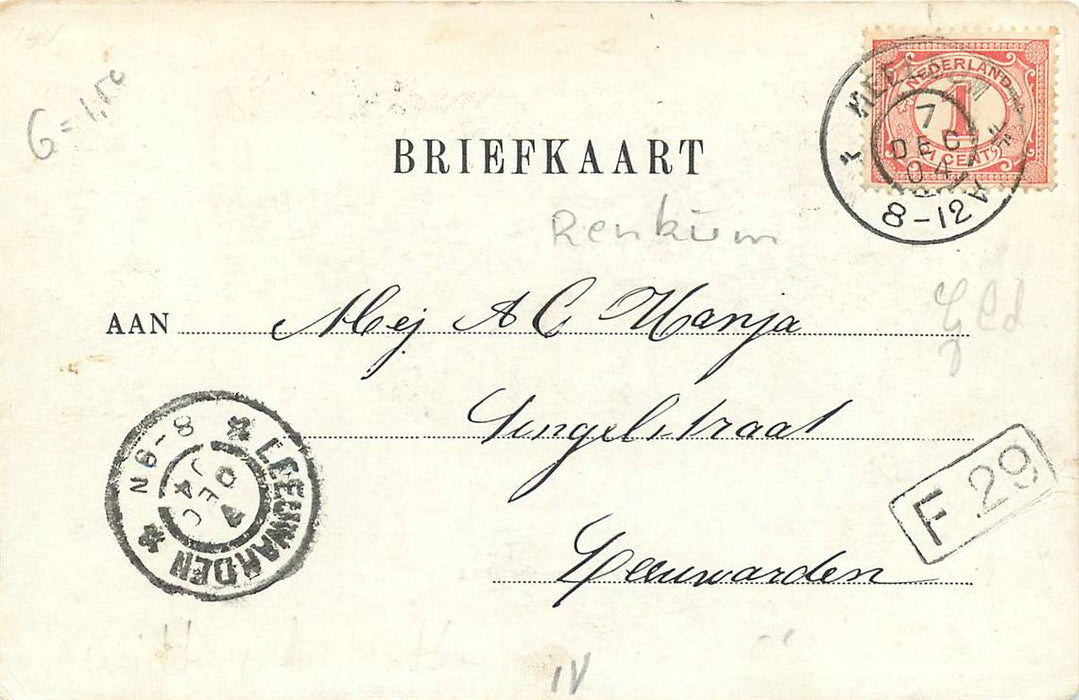 G = 1,50
NEDERLAND
1
CENT
7
DEC
04
8-12 V
BRIEFKAART
Renkum
AAN Mej A C Hanja
Gld
Singelstraat
LEEUWARDEN
7
DEC
04
8-9N
F 29
Leeuwarden
IV